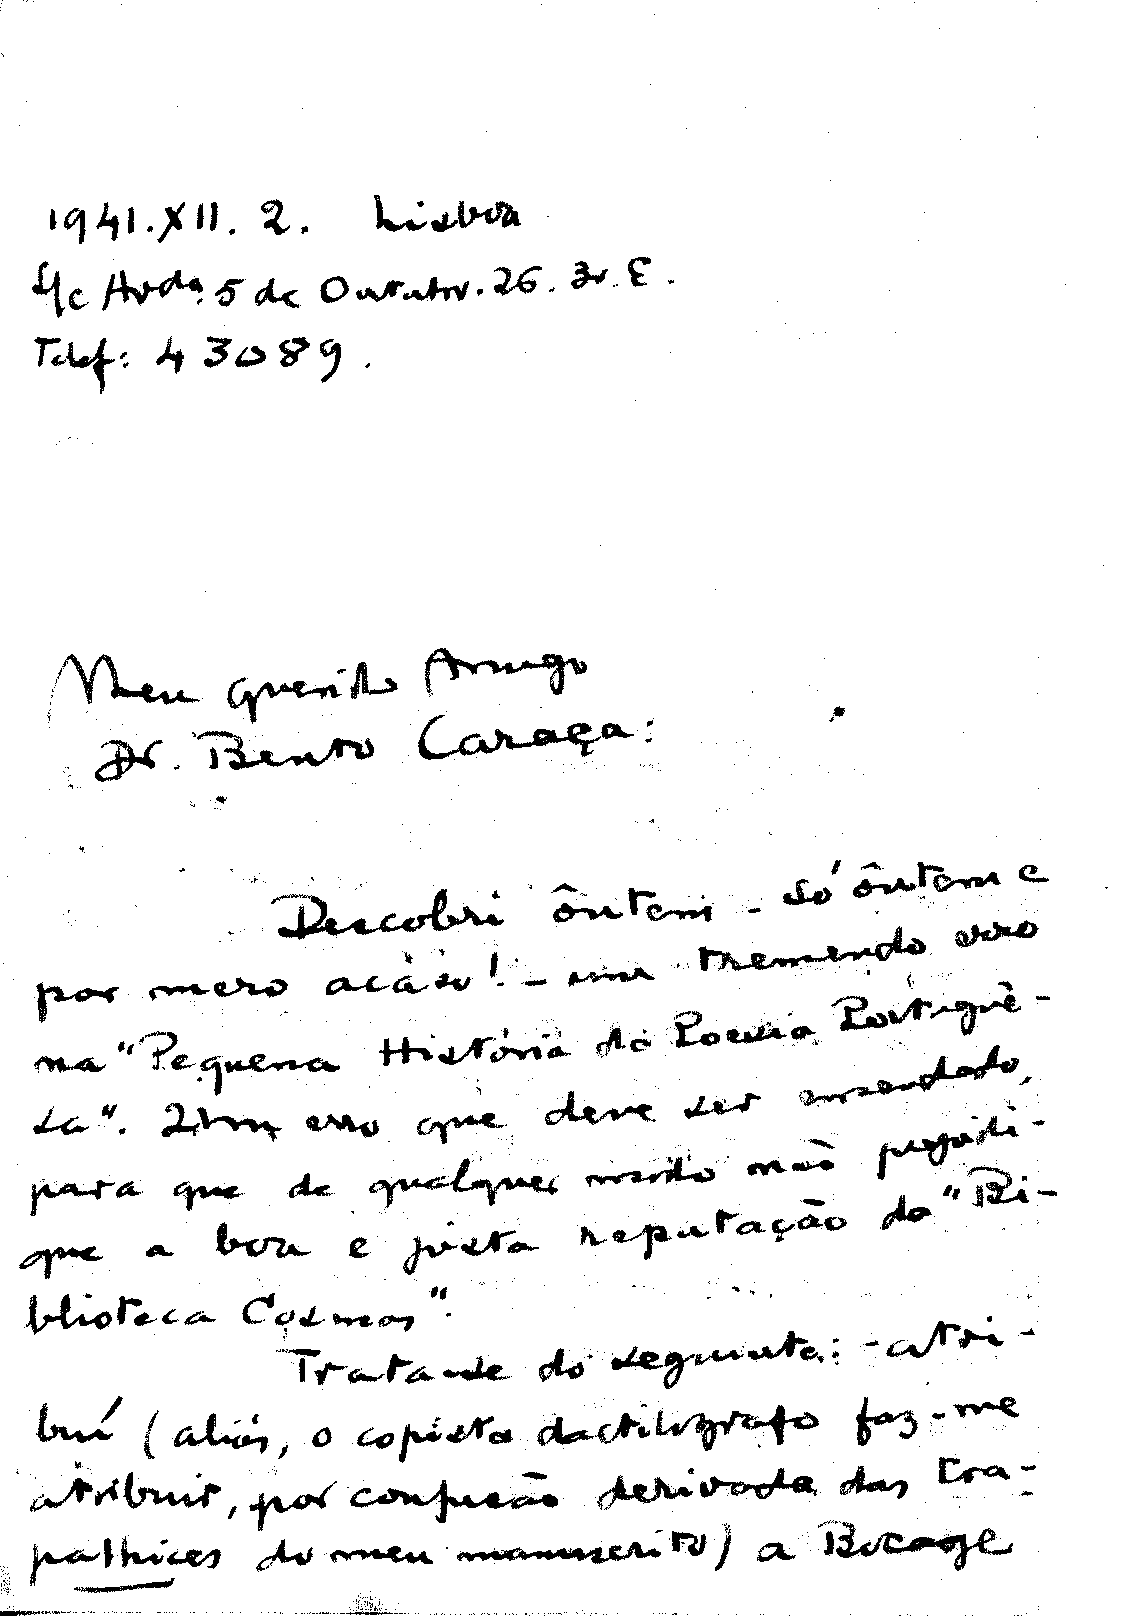 1941.XII.2. Lisboa
S/c Avda. 5 de Outubro. 26. 3º. E.
Telef: 43089.
Meu querido Amigo
Dr. Bento Caraça:
Descobri ôntem - só ôntem e
por mero acáso! - um tremendo erro
na "Pequena História da Poesia Portuguê-
sa". Um erro que deve ser emendado,
para que de qualquer modo não prejudi-
que a boa e justa reputação da "Bi-
blioteca Cosmos".
Trata-se do seguinte: - atri-
buí (aliás, o copista dactilógrafo faz-me
atribuir, por confusão derivada das tra-
palhices do meu manuscrito) a Bocage